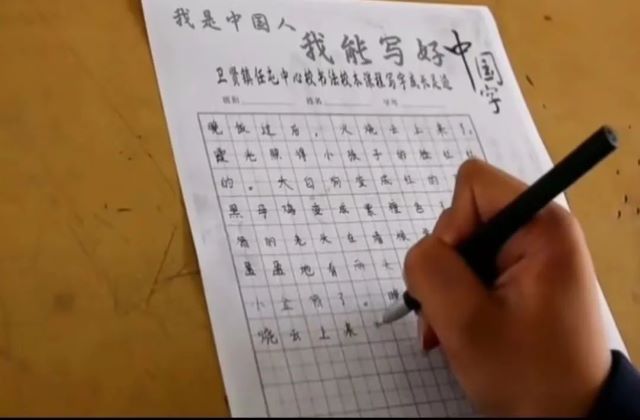 我是中国人
我能写好中国字
卫贤镇任屯中心校书法校本课程写字成长足迹
班别 姓名 学号
晚饭过后，火烧云上来了，
霞光照得小孩子的脸红红
的。大白狗变成红的
黑母鸡变成紫檀色
的老头在墙根
盈盈地看两
小金猪了。
烧云上来